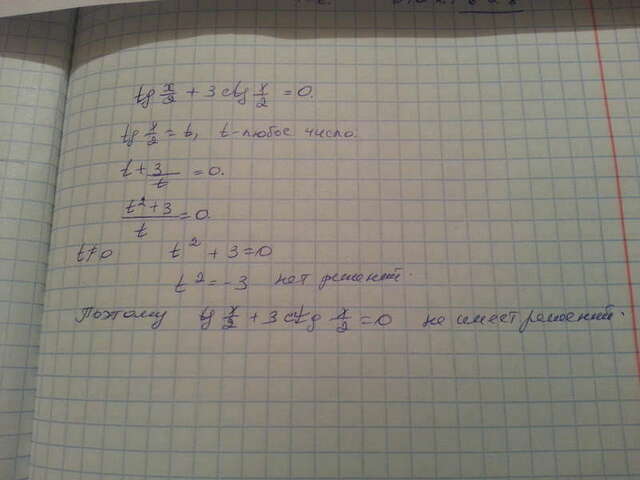 tg x/2 + 3 ctg x/2 = 0.
tg x/2 = t, t-любое число.
t + 3/t = 0.
t²+3/t = 0.
t≠0 t² + 3 = 0
t² = -3 нет решений.
Поэтому tg x/2 + 3 ctg x/2 = 0 не имеет решений.